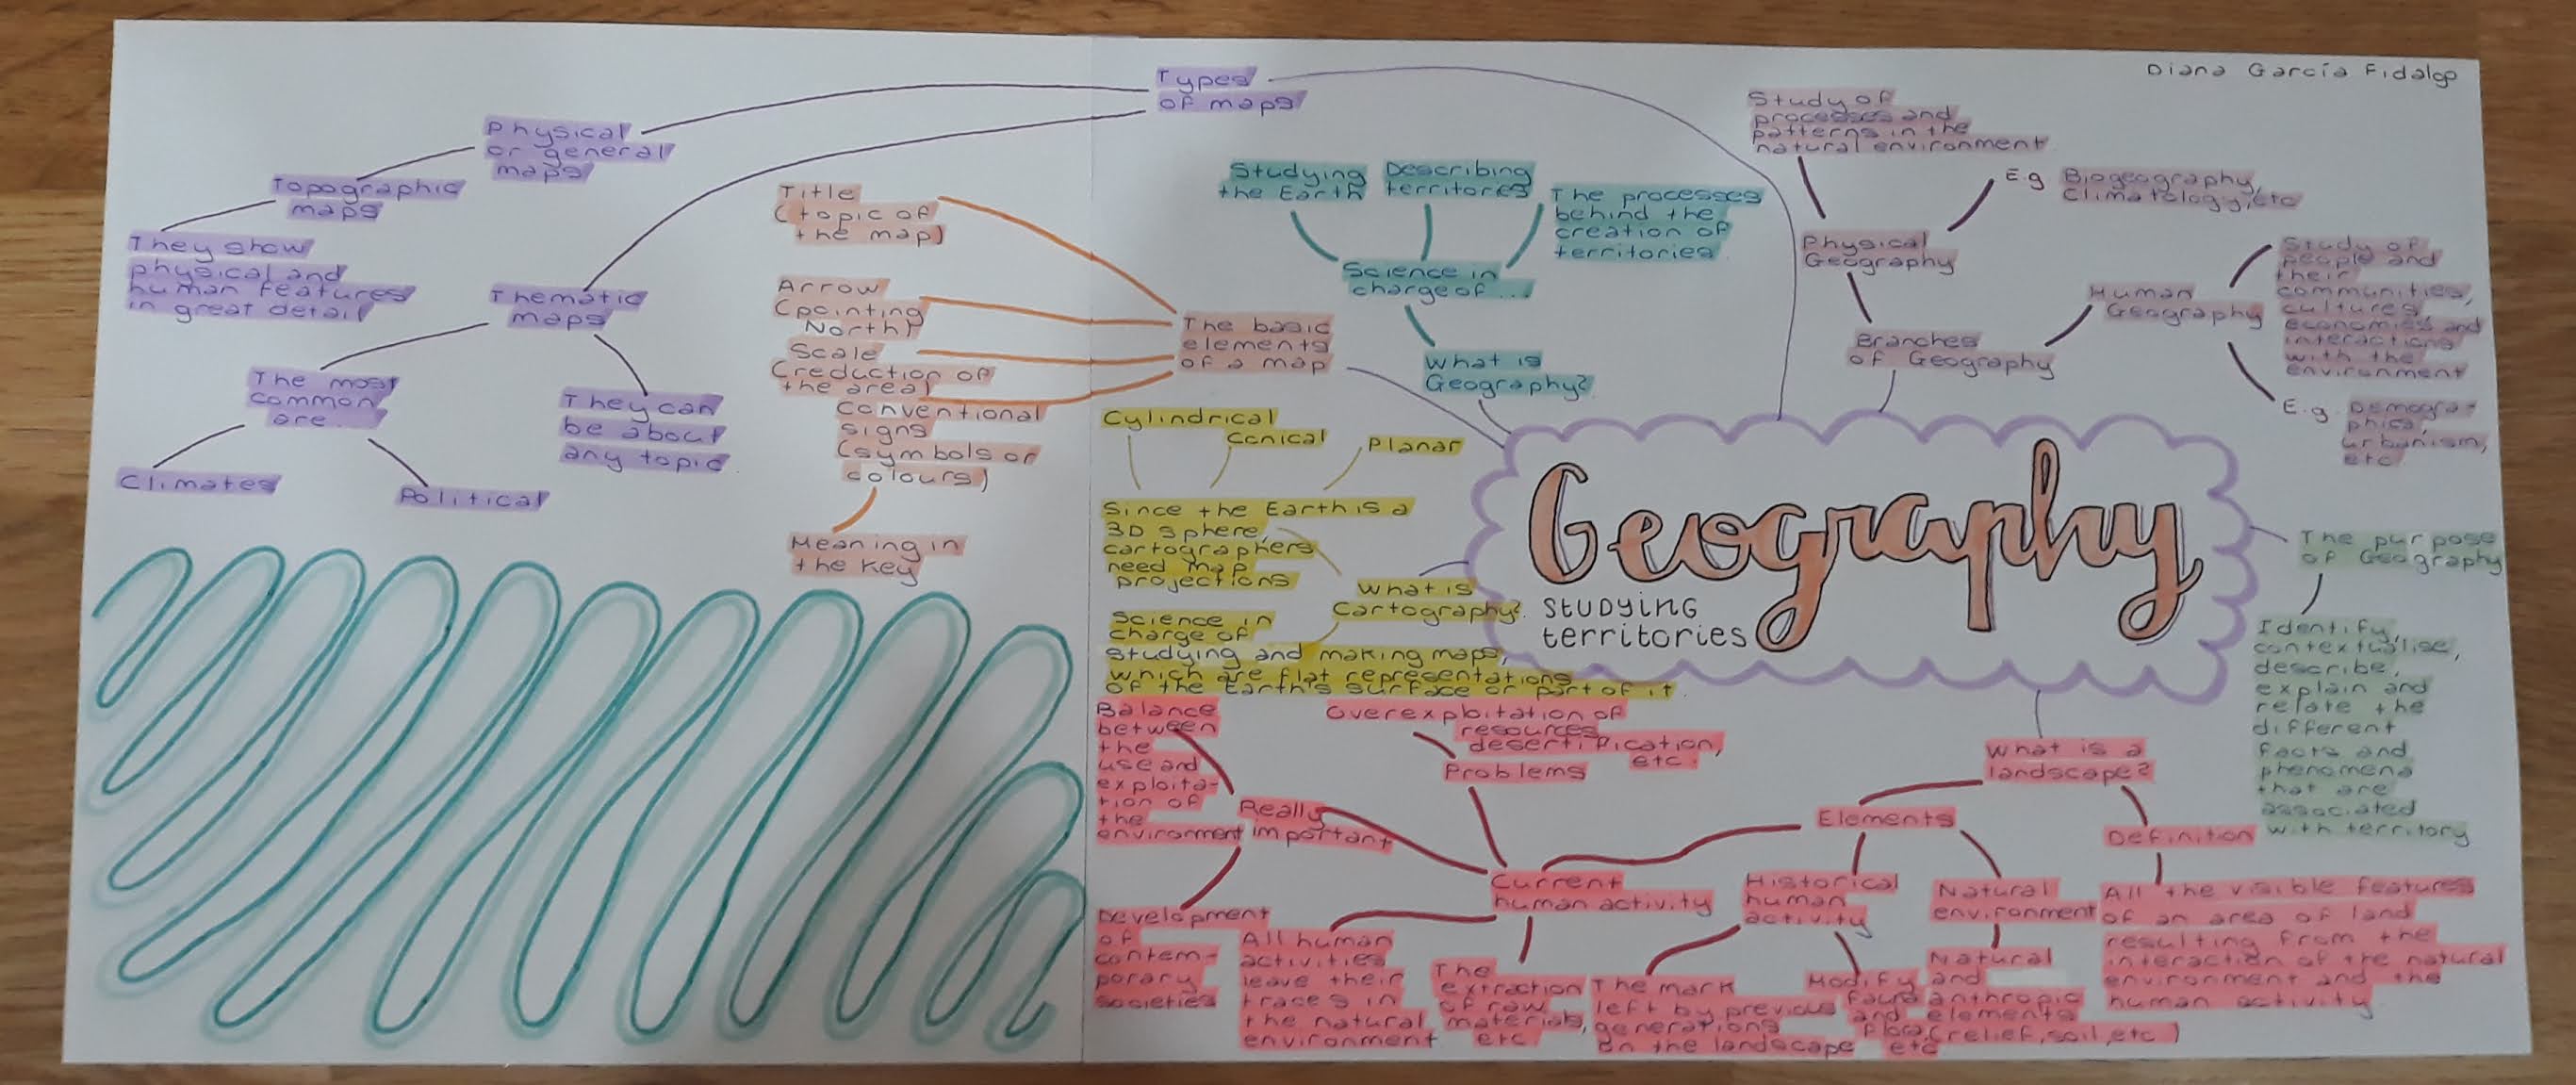 Diana García Fidalgo
Types
of maps
Physical
or general
maps
Topographic
maps
They show
physical and
human features
in great detail
Thematic
maps
The most
common
are...
Climates
Political
They can
be about
any topic
Title
(topic of
the map)
Arrow
(pointing
North)
Scale
(reduction of
the area)
Conventional
signs
(symbols or
colours)
Meaning in
the key
The basic
elements
of a map
Studying
the Earth
Describing
territores
The processes
behind the
creation of
territories
Science in
charge of ...
What is
Geography?
Study of
processes and
patterns in the
natural environment
E.g Biogeography,
Climatology, etc
Physical
Geography
Branches
of Geography
Human
Geography
Study of
people and
their
communities,
cultures,
economies and
interactions
with the
environment
E.g. Demogra-
phics,
urbanism,
etc
Cylindrical
Conical
Planar
Since the Earth is a
3D sphere,
cartographers
need map
projections
What is
Cartography?
Science in
charge of
studying and making maps,
which are flat representations
of the Earth's surface or part of it
Geography
STUDYING
territories
The purpose
of Geography
Identify,
contextualise,
describe,
explain and
relate the
different
facts and
phenomena
that are
associated
with territory
What is a
landscape?
Elements
Definition
All the visible features
of an area of land
resulting from the
interaction of the natural
environment and the
human activity
Natural
environment
Natural
and
anthropic
elements
(relief, soil, etc)
Historical
human
activity
The mark
left by previous
generations
on the landscape
Modify
fauna
and
flora,
etc
Current
human activity
Problems
Overexploitation of
resources,
desertification,
etc.
Really
important
Balance
between
the
use and
exploita-
tion of
the
environment
Development
of
contem-
porary
societies
All human
activities
leave their
traces in
the natural
environment
The
extraction
of raw
materials,
etc